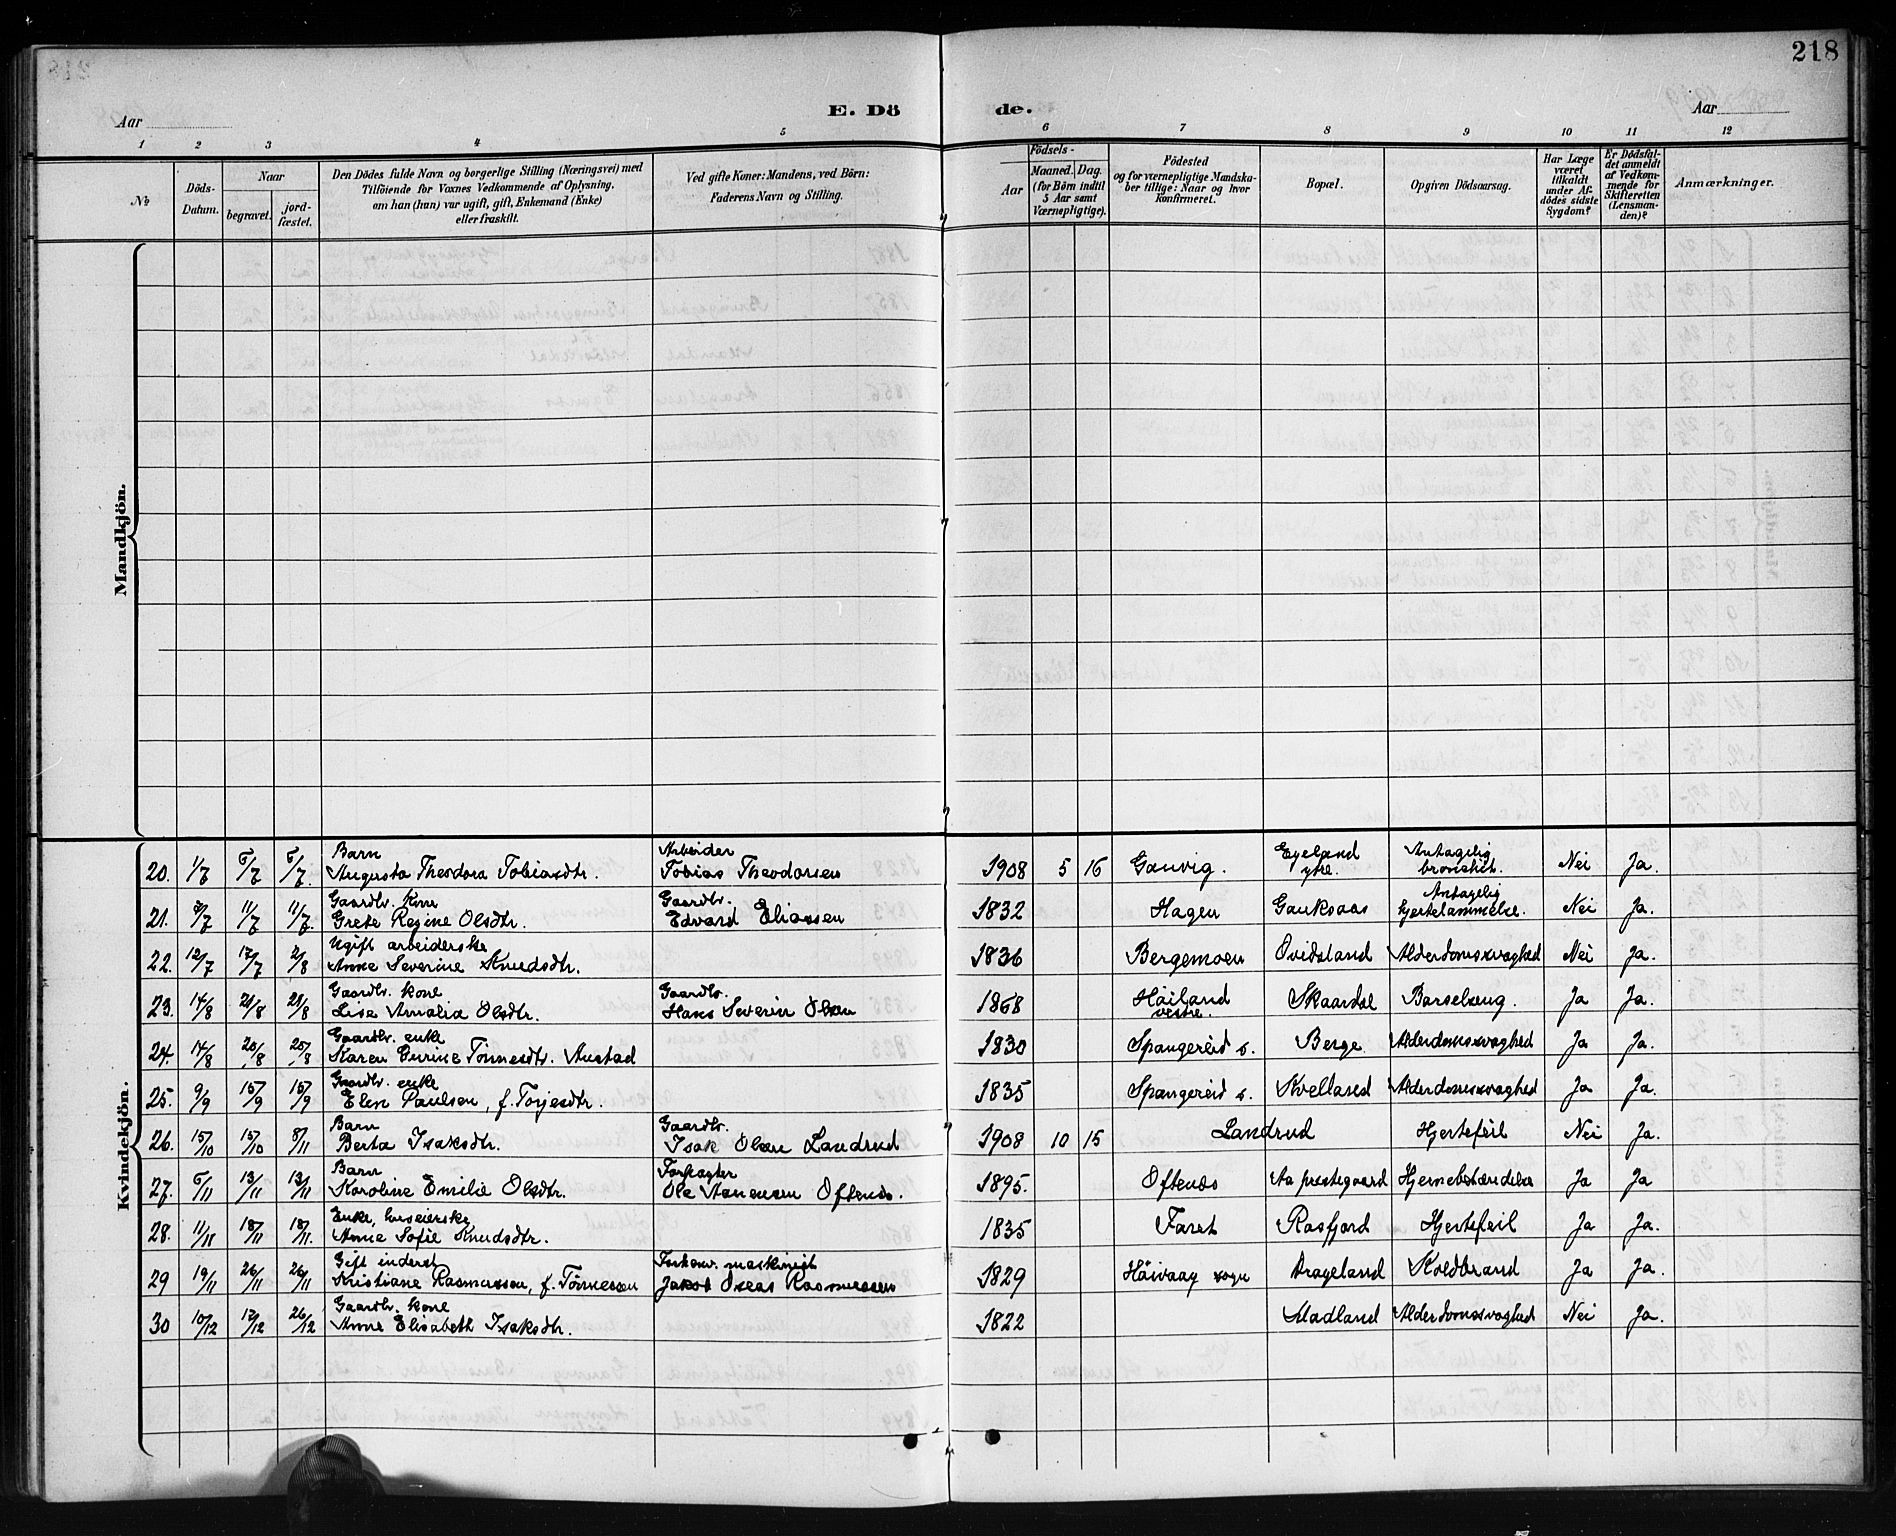 218
E. Dö de.
Aar
Aar
1 2 3 4 5 6 7 8 9 10 11 12
No
Döds-Datum.
Naar
begravet.
jord-fæstet.
Den Dödes fulde Navn og borgerlige Stilling (Næringsvei) med
Tilföiende for Voxnes Vedkommende af Oplysning,
om han (hun) var ugift, gift, Enkemand (Enke)
eller fraskilt.
Ved gifte Koner: Mandens, ved Börn:
Faderens Navn og Stilling.
Födsels-
Aar
Maaned.
Dag.
(for Börn indtil
5 Aar samt
Værnepligtige).
Födested
og for værnepligtige Mandska-
ber tillige: Naar og hvor
konfirmeret.
Bopæl.
Opgiven Dödsaarsag.
Har Læge
været
tilkaldt
under Af-
dödes sidste
Sygdom?
Er Dödsfal-
det anmeldt
af Vedkom-
mende for
Skifteretten
(Lensman-
den)?
Anmærkninger.
Mandkjön.
Kvindekjön.
Barn Arbeider Eyeland Antagelig
20. 1/7 6/7 6/7. Augusta Theodora Tobiasdtr. Tobias Theodorsen 1908 5 16 Gauvig. ytre. bronchit. Nei Ja.
Gaardbr. kone Gaardbr. Antagelig
21. 7/7 11/7 11/7. Grete Regine Olsdtr. Edvard Eliassen 1832 Hagen Gauksaas hjertelammelse. Nei Ja.
Ugift arbeiderske
22. 12/7 17/7 2/8 Anne Severine Knudsdtr. 1836 Bergemoen Ovidsland Alderdomssvaghed Nei Ja.
Gaardbr. kone Gaardbr.
23. 14/8 21/8 21/8 Lise Amalia Olsdtr. Hans Severin Olsen 1868 Høiland vestre. Skaardal Barselseng. Ja Ja.
Gaardbr. enke
24. 14/8 20/8 25/8 Karen Gurine Tønnesdtr. Austad 1830 Spangereid s. Berge Alderdomssvaghed Ja Ja.
Gaardbr. enke
25. 9/9 15/9 15/9 Elen Paulsen, f. Torjesdtr. 1835 Spangereid s. Kvelland Alderdomssvaghed Ja Ja.
Barn Gaardbr.
26. 15/10 15/10 8/11 Berta Isaksdtr. Isak Olsen Landrud 1908 10 15 Landrud Hjertefeil Nei Ja.
Barn Forpagter
27. 6/11 13/11 13/11 Karoline Emilie Olsdtr. Ole Asnensen Oftenes. 1895. Oftenes Aa prestegaard Hjernebetændelse Ja Ja
Enke, huseierske
28. 11/11 18/11 18/11. Anne Sofie Knudsdtr. 1835 Faret Rosfjord Hjertefeil Ja Ja.
Gift inderst Forhenv. maskinist
29 19/11 26/11 26/11 Kristiane Rasmussen, f. Tønnesen Jakob Oseas Rasmussen 1829 Høivaag sogn Drageland Koldbrand Ja Ja.
Gaardbr. kone
30 10/12 17/12 26/12 Anne Elisabeth Isaksdtr. 1822 Stadland Alderdomssvaghed Nei Ja.